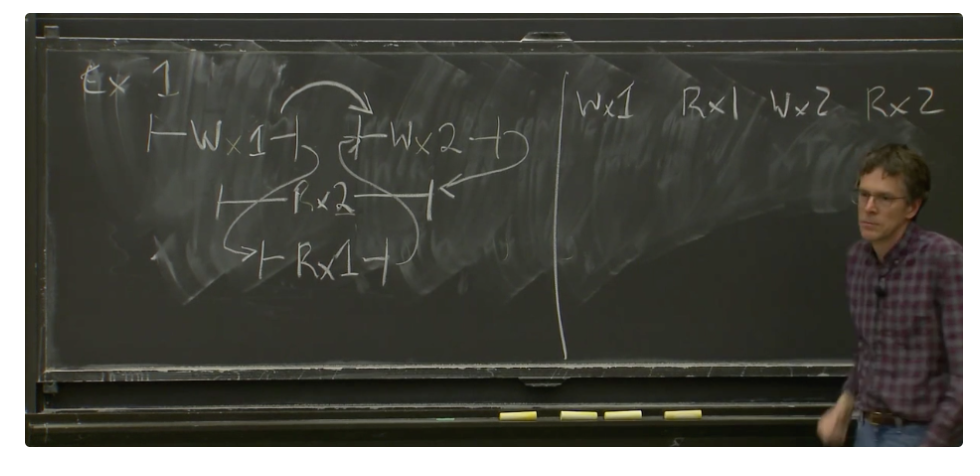 Ex 1
|-Wx1-| |-Wx2-|
|-Rx2-|
|-Rx1-|
Wx1 Rx1 Wx2 Rx2